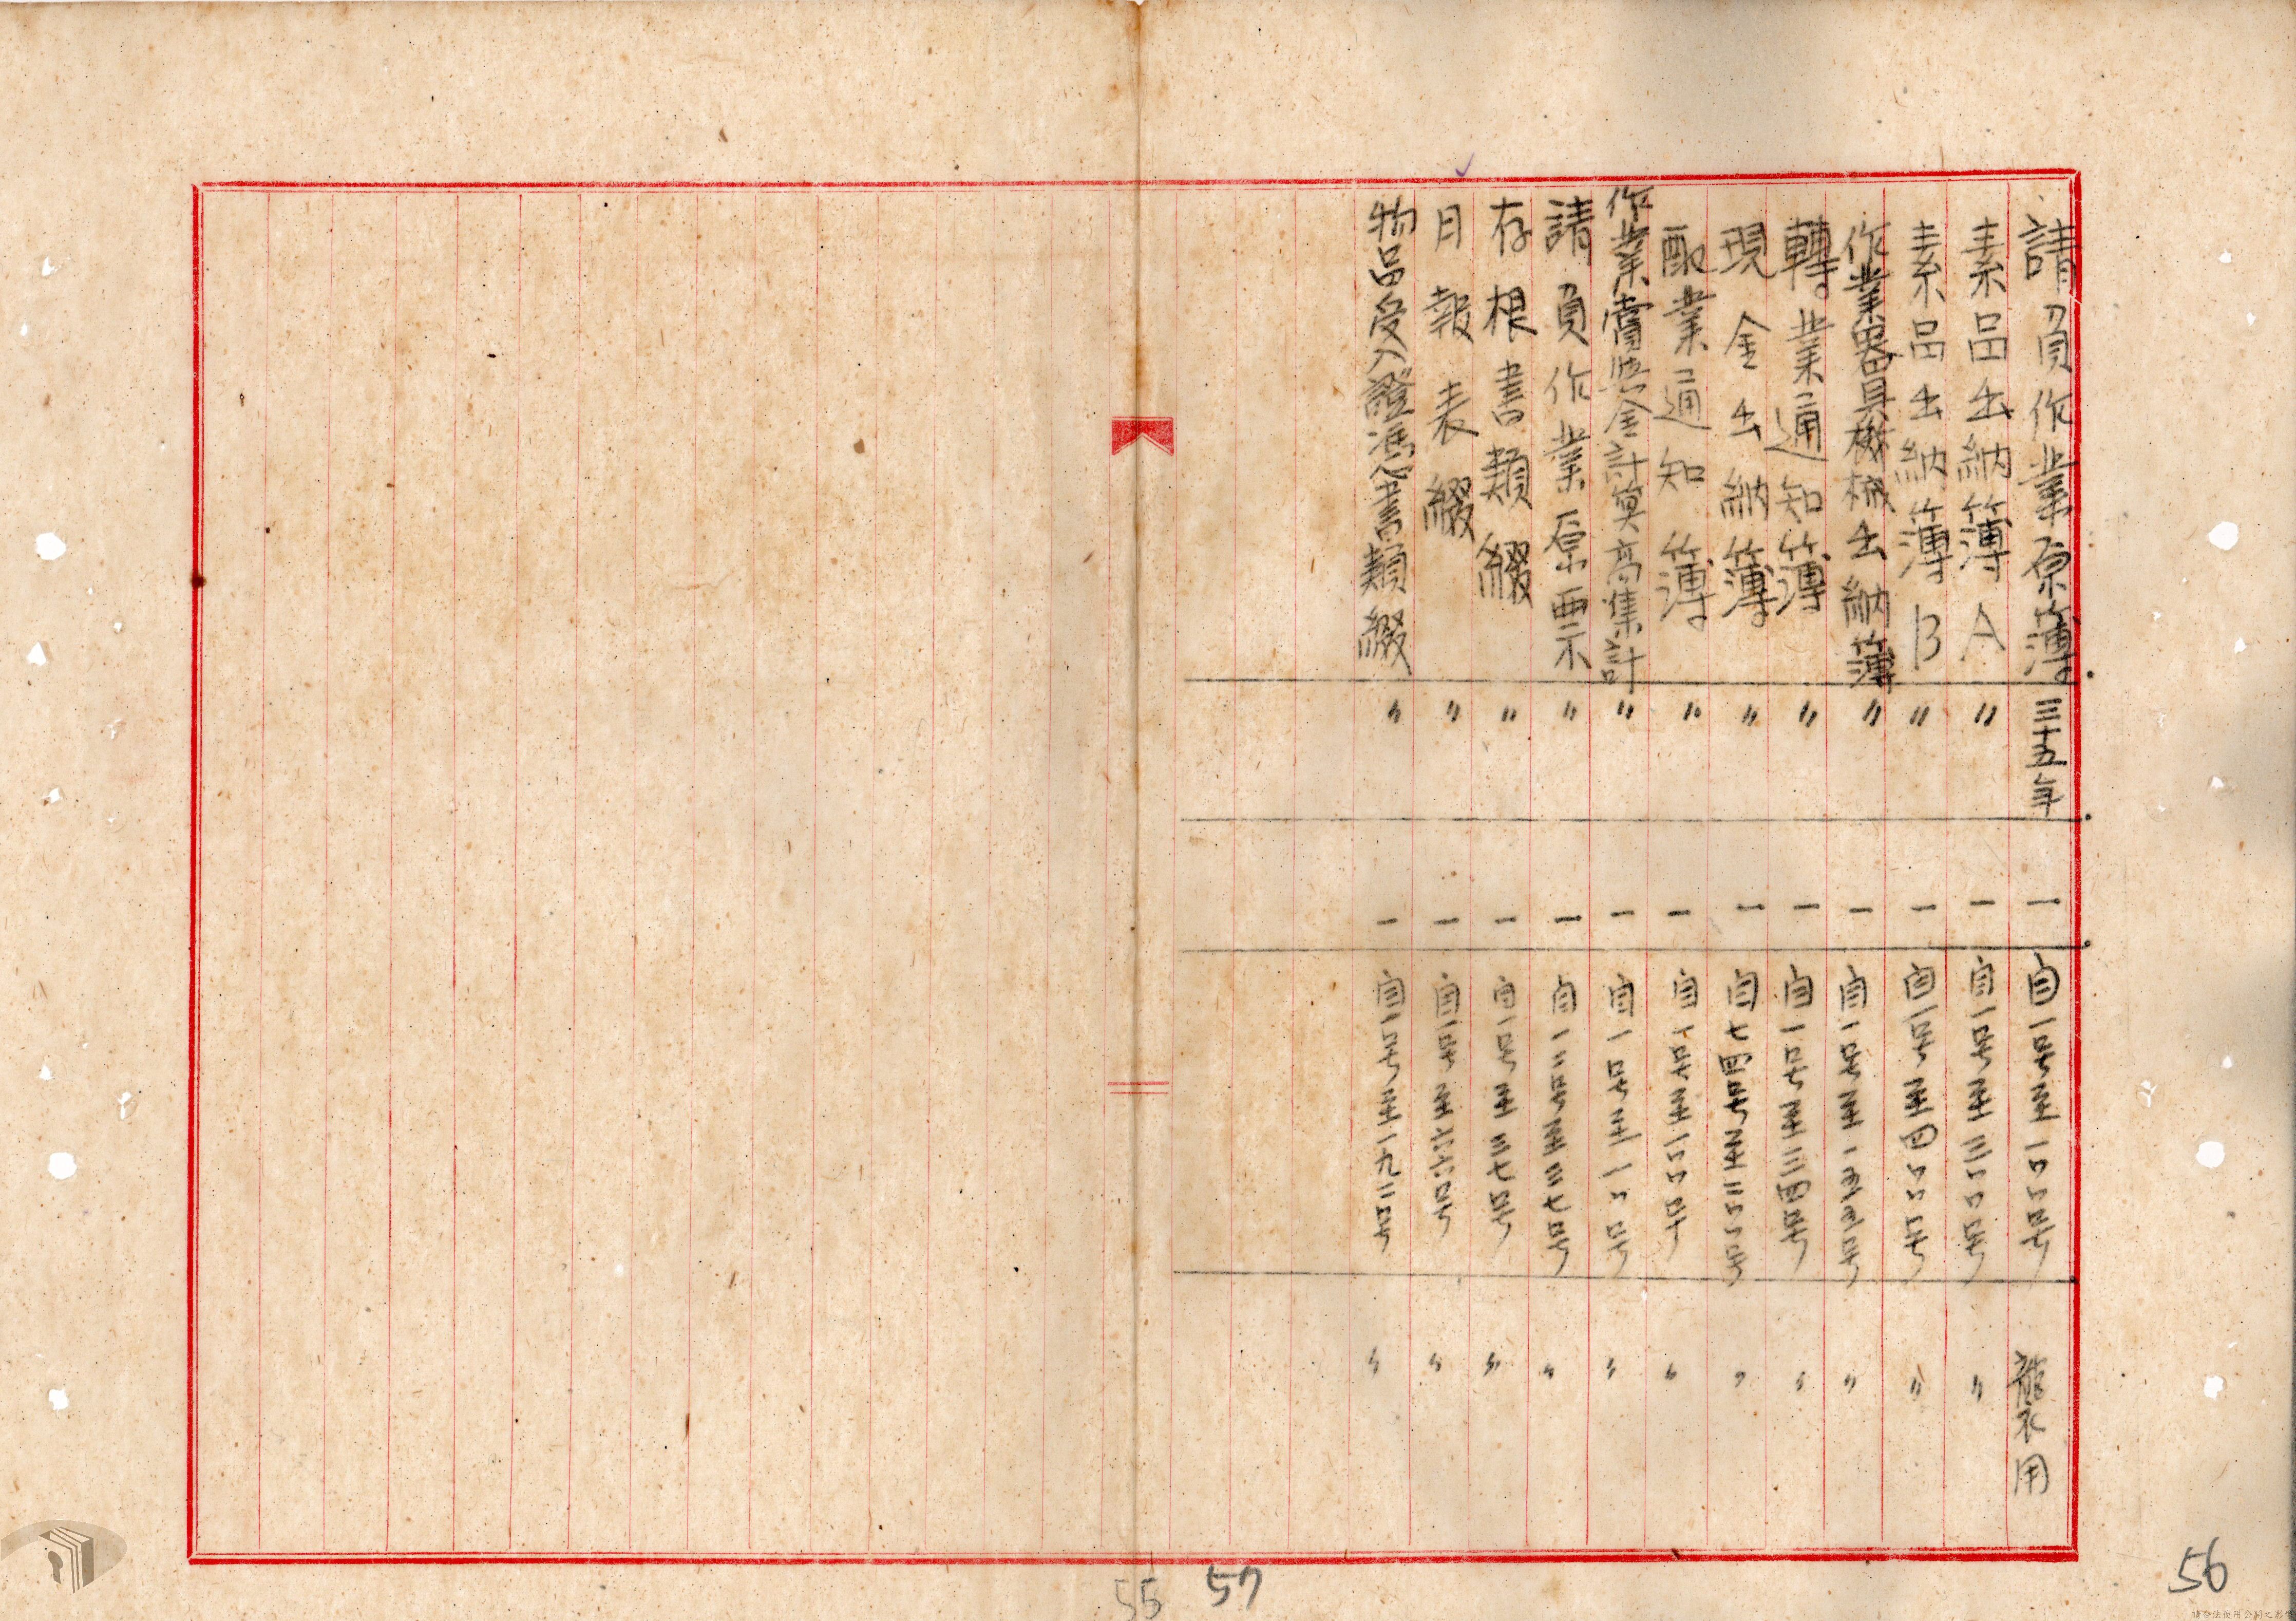 請負作業原簿 三十五年 一 自一号至一〇〇号 用
素品出納簿A 〃 一 自一号至三〇〇号 〃
素品出納簿B 〃 一 自一号至四〇〇号 〃
作業器具機械出納簿 〃 一 自一号至一 号 〃
轉業通知簿 〃 一 自一号至三四号 〃
現金出納簿 〃 一 自七四号至二〇〇号 〃
配業通知簿 〃 一 自一号至一〇〇号 〃
作業賞与金計算高集計 〃 一 自一号至一一〇号 〃
請負作業原票 〃 一 自一二号至三七号 〃
存根書類綴 〃 一 自一号至三七号 〃
月報表綴 〃 一 自一号至六六号 〃
物品受入證憑書類綴 〃 一 自一号至一九二号 〃
55 57
56